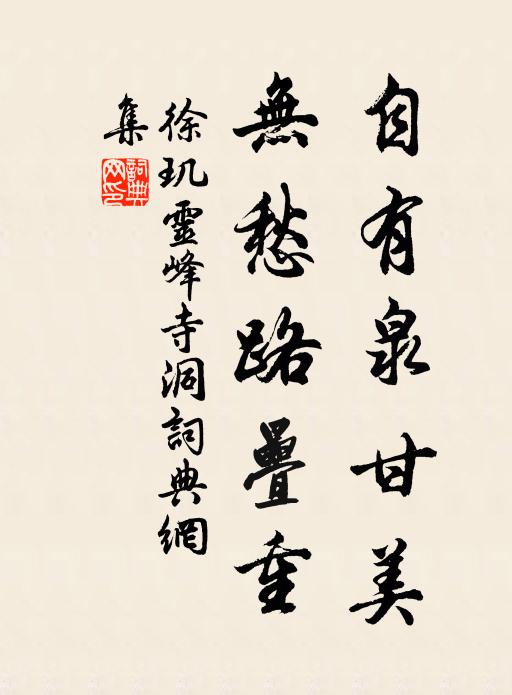 自有泉甘美
無愁路疊重
徐玑靈峰寺洞詞典網
集
詞典網印